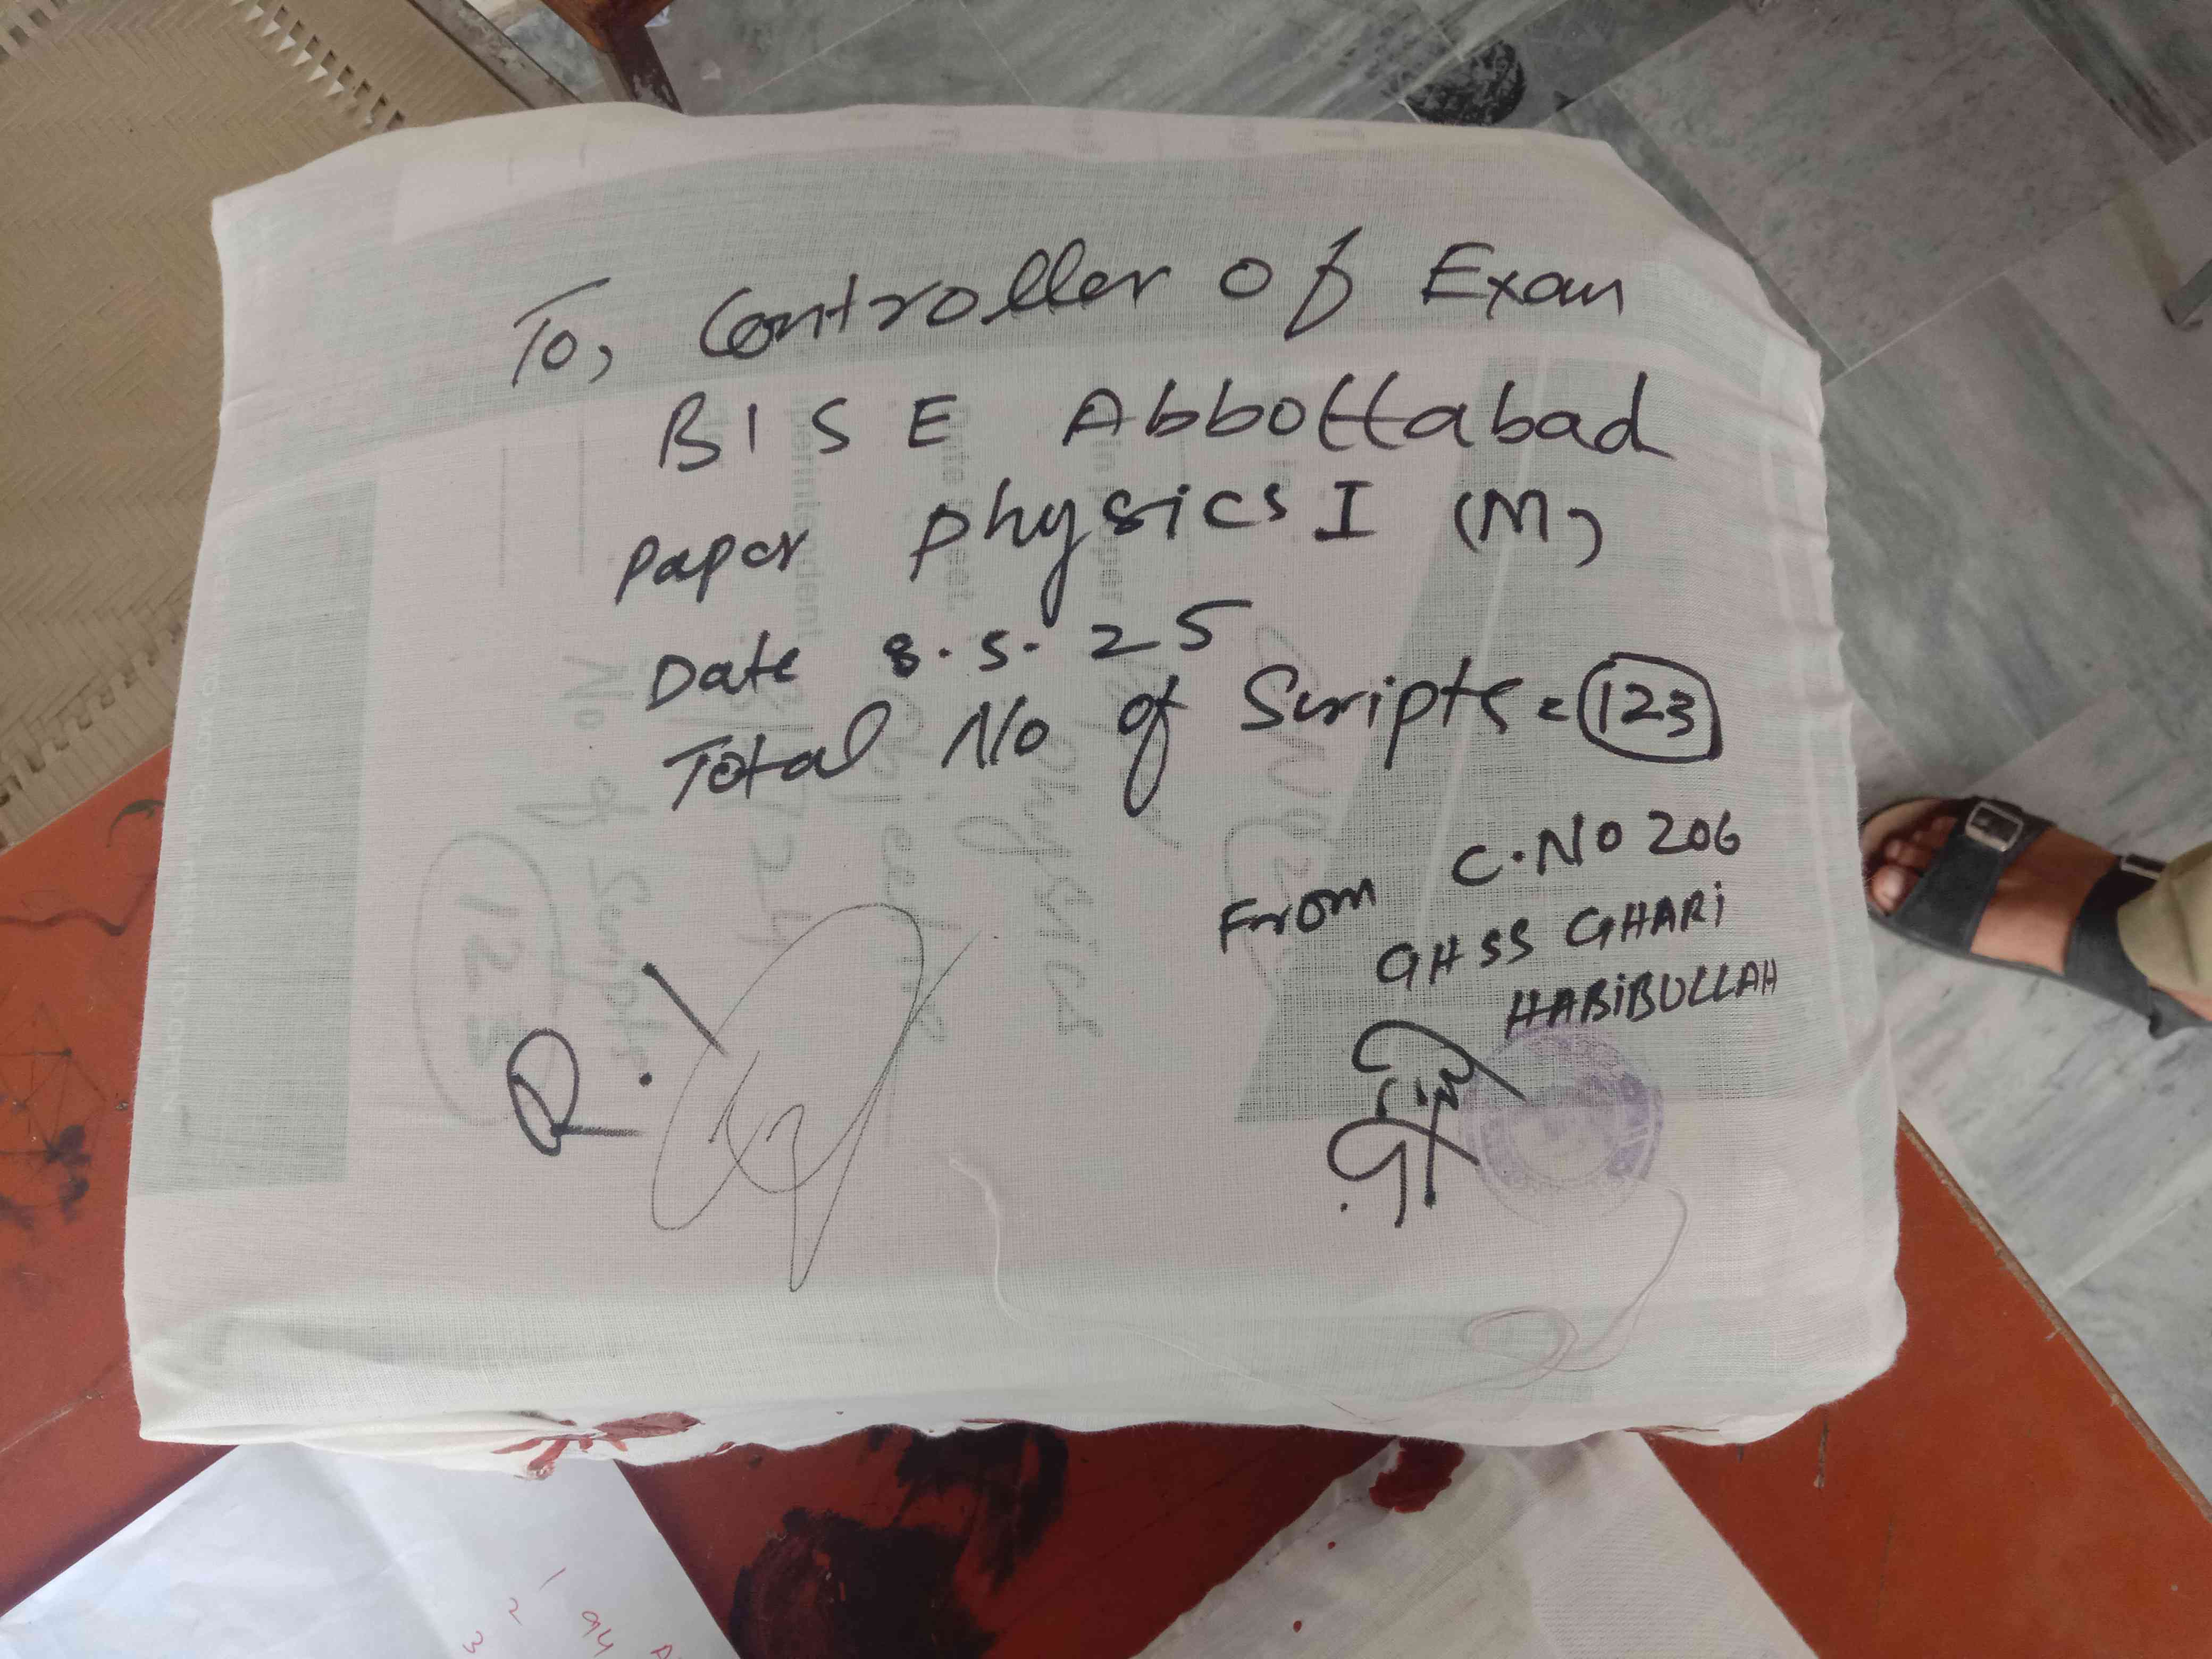 To, Controller of Exam
BISE Abbottabad
Paper Physics I (M)
Date 8.5.25
Total No of Scripts = 123
From C.NO 206
GHSS GHARI
HABIBULLAH
R.I
1
2
3
94